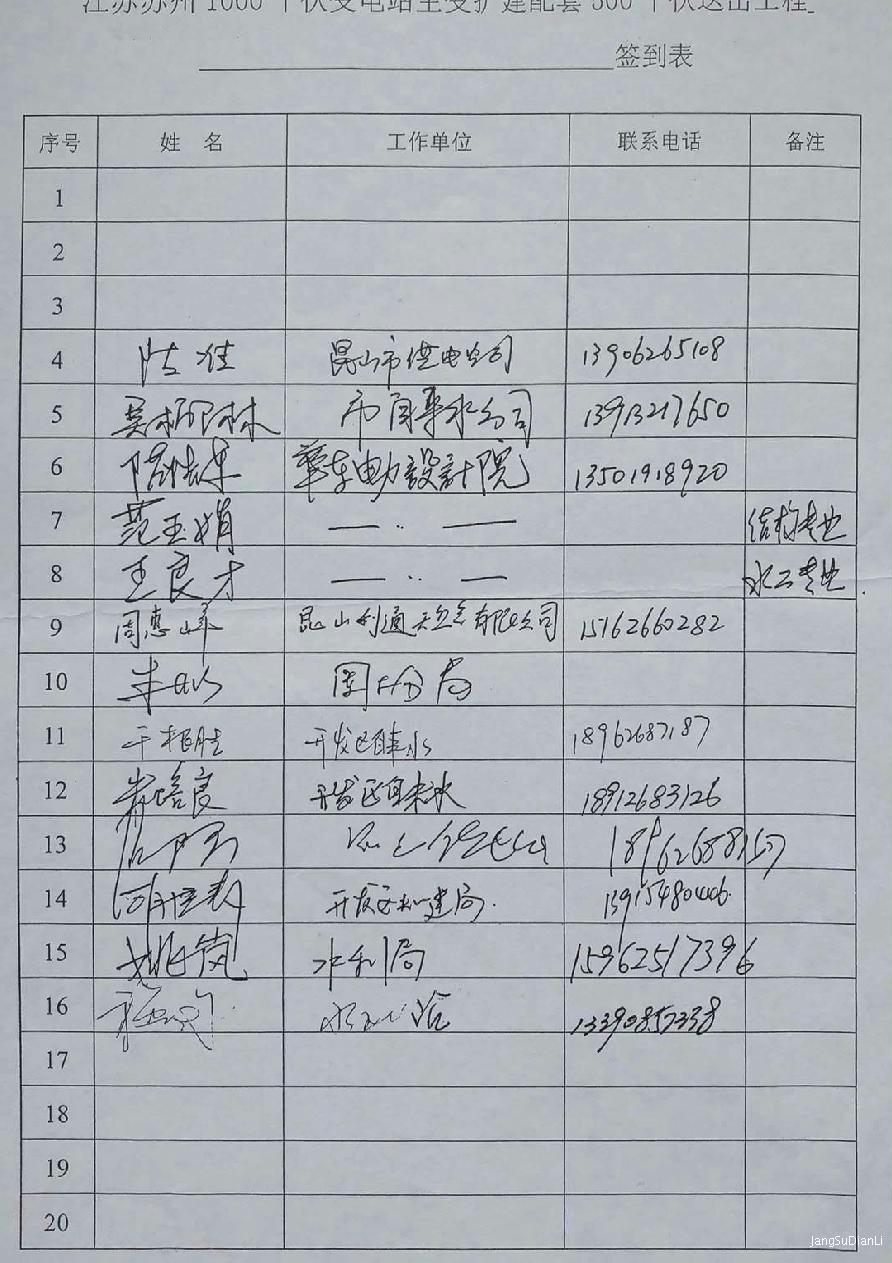 江苏苏州1000千伏变电站主变扩建配套500千伏送出工程
签到表
序号 姓 名 工作单位 联系电话 备注
1
2
3
4 陆佳 昆山市供电公司 13906265108
5 市自来水公司 13913217650
6 华东电力設計院 13501918920
7 范玉娟 —〃— 结构专业
8 王良才 —〃— 水工专业
9 周惠峰 昆山利通天然气有限公司 15162660282
10 朱 国土分局
11 干根胜 开发区自来水 18962687187
12 培良 开发区自来水 18912683126
13 18962688157
14 开发区规建局. 13915480406
15 姚岚 水利局 15962517396
16 13390857338
17
18
19
20
JangSuDianLi